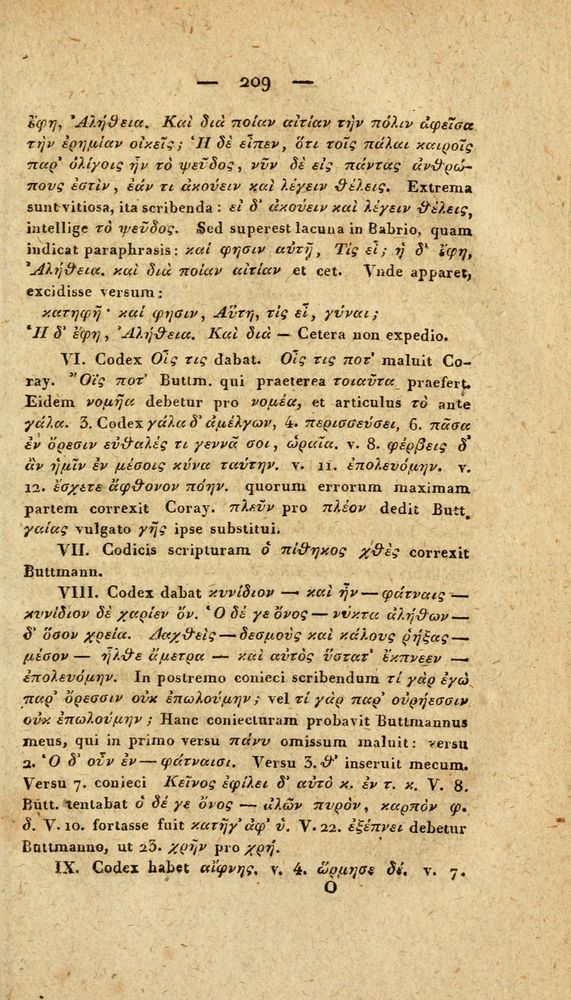 — 209 —
ἔφη, Ἀλήθεια. Καὶ διὰ ποίαν αἰτίαν τὴν πόλιν ἀφεῖσα
τὴν ἐρημίαν οἰκεῖς; Ἡ δὲ εἶπεν, ὅτι τοῖς πάλαι καιροῖς
παρ' ὀλίγοις ἦν τὸ ψεῦδος, νῦν δὲ εἰς πάντας ἀνθρώ-
πους ἐστὶν, ἐάν τι ἀκούειν καὶ λέγειν θέλεις. Extrema
sunt vitiosa, ita scribenda: εἰ δ' ἀκούειν καὶ λέγειν θέλεις,
intellige τὸ ψεῦδος. Sed superest lacuna in Babrio, quam
indicat paraphrasis: καί φησιν αὐτῇ, Τίς εἶ; ἡ δ' ἔφη,
Ἀλήθεια. καὶ διὰ ποίαν αἰτίαν et cet. Vnde apparet,
excidisse versum:
κατηφῆ· καί φησιν, Αὕτη, τίς εἶ, γύναι;
Ἡ δ' ἔφη, Ἀλήθεια. Καὶ διὰ — Cetera non expedio.
VI. Codex Οἷς τις dabat. Οἷς τις ποτ' maluit Co-
ray. Ὄϊς ποτ' Buttm. qui praeterea τοιαῦτα praefert.
Eidem νομῆα debetur pro νομέα, et articulus τὸ ante
γάλα. 3. Codex γάλα δ' ἀμέλγων, 4. περισσεύσει, 6. πᾶσα
ἐν ὄρεσιν εὐθαλές τι γεννᾷ σοι, ὡραῖα. v. 8. φέρβεις δ'
ἂν ἡμῖν ἐν μέσοις κύνα ταύτην. v. 11. ἐπολευόμην. v.
12. ἔσχετε ἄφθονον πόην. quorum errorum maximam
partem correxit Coray. πλεῦν pro πλέον dedit Butt.
γαίας vulgato γῆς ipse substitui.
VII. Codicis scripturam ὁ πίθηκος χθὲς correxit
Buttmann.
VIII. Codex dabat κυνίδιον — καὶ ἦν — φάτναις —
κυνίδιον δὲ χαρίεν ὄν. Ὁ δέ γε ὄνος — νύκτα ἀλήθων —
δ' ὅσον χρεία. Δαχθεὶς — δεσμοὺς καὶ κάλους ῥήξας —
μέσον — ἦλθε ἄμετρα — καὶ αὐτὸς ὕστατ' ἔκπνεεν —
ἐπολευόμην. In postremo conieci scribendum τί γὰρ ἐγὼ
παρ' ὄρεσσιν οὐκ ἐπωλούμην; vel τί γὰρ παρ' οὐρήεσσιν
οὐκ ἐπωλούμην; Hanc coniecturam probavit Buttmannus
meus, qui in primo versu πάνυ omissum maluit: versu
2. Ὁ δ' οὖν ἐν — φάτναισι. Versu 3. θ' inseruit mecum.
Versu 7. conieci Κεῖνος ἐφίλει δ' αὐτὸ κ. ἐν τ. κ. V. 8.
Butt. tentabat ὁ δέ γε ὄνος — ἀλῶν πυρὸν, καρπὸν φ.
δ. V. 10. fortasse fuit κατῆγ' ἀφ' ὑ. V. 22. ἐξέπνει debetur
Buttmanno, ut 23. χρῆν pro χρή.
IX. Codex habet αἴφνης. v. 4. ὥρμησε δέ. v. 7.
O